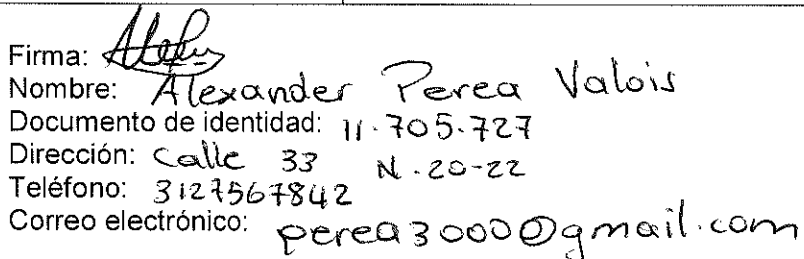 Firma:
Nombre: Alexander Perea Valois
Documento de identidad: 11.705.727
Dirección: Calle 33 N. 20-22
Teléfono: 3127567842
Correo electrónico: perea3000@gmail.com